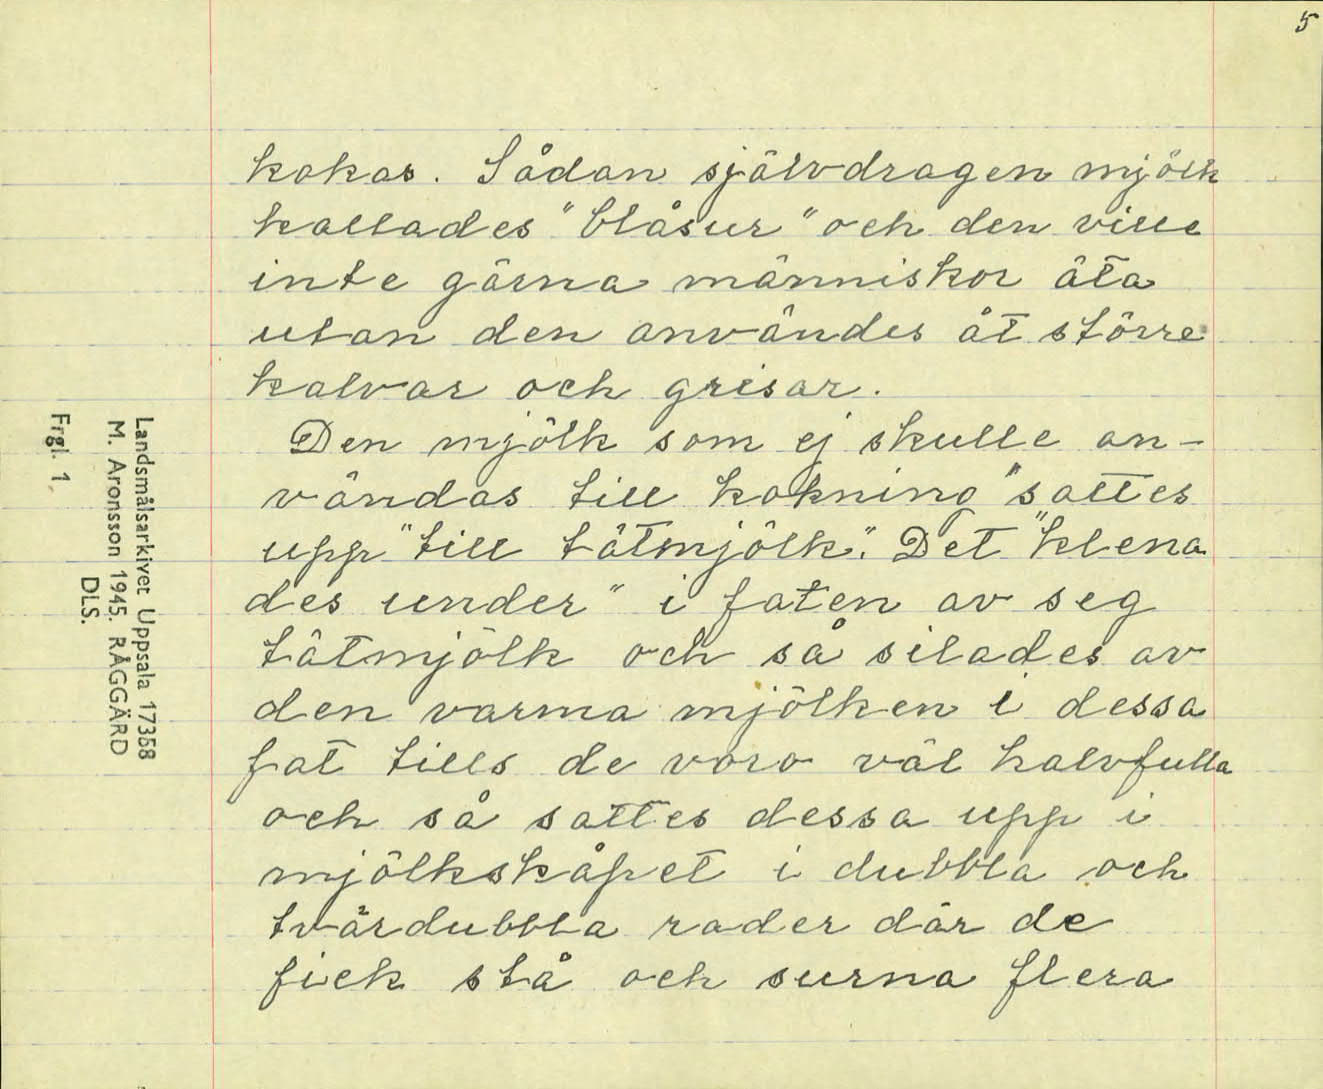 5
kokas. Sådan självdragen mjölk
kallades "blåsur" och den ville
inte gärna människor äta
utan den användes åt större
kalvar och grisar.
Den mjölk som ej skulle an-
vändas till kokning "sattes
upp" till tätmjölk". Det "klena
des under" i faten av seg
tätmjölk och så silades av
den varma mjölken i dessa
fat tills de voro väl halvfulla
och så sattes dessa upp i
mjölkskåpet i dubbla och
tvärdubbla rader där de
fick stå och surna flera
Landsmålsarkivet Uppsala 17358
M. Aronsson 1945. RÅGGÄRD
DLS.
Frgl. 1